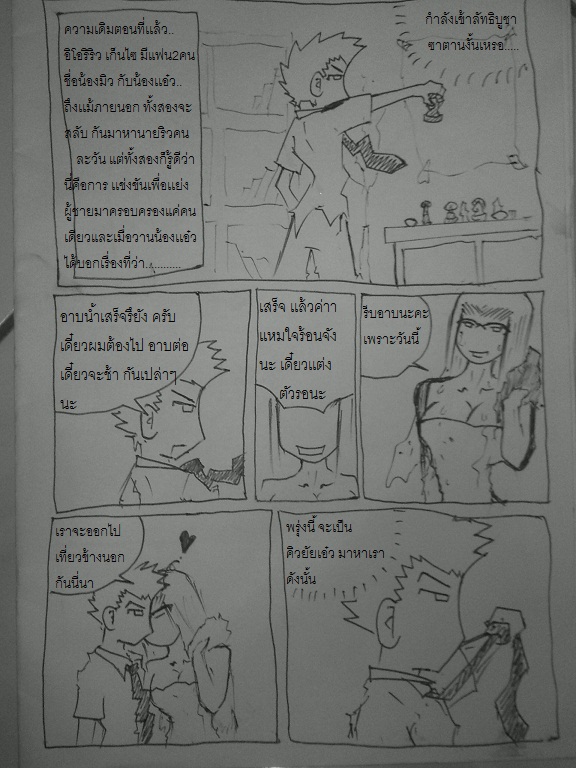 ความเดิมตอนที่แล้ว..
อิโอริริว เก็นไซ มีแฟน2คน
ชื่อน้องมิว กับน้องแอ๋ว..
ถึงแม้ภายนอก ทั้งสองจะ
สลับ กันมาหานายริวคน
ละวัน แต่ทั้งสองก็รู้ดีว่า
นี่คือการ แข่งขันเพื่อแย่ง
ผู้ชายมาครอบครองแค่คน
เดียวและเมื่อวานน้องแอ๋ว
ได้บอกเรื่องที่ว่า..........
กำลังเข้าลัทธิบูชา
ซาตานงั้นเหรอ.....
อาบน้ำเสร็จรึยัง ครับ
เดี๋ยวผมต้องไป อาบต่อ
เดี๋ยวจะช้า กันเปล่าๆ
นะ
เสร็จ แล้วค่าา
แหมใจร้อนจัง
นะ เดี๋ยวแต่ง
ตัวรอนะ
รีบอาบนะคะ
เพราะวันนี้
เราจะออกไป
เที่ยวข้างนอก
กันนี่นา
พรุ่งนี้ จะเป็น
คิวยัยเอ๋ว มาหาเรา
ดังนั้น